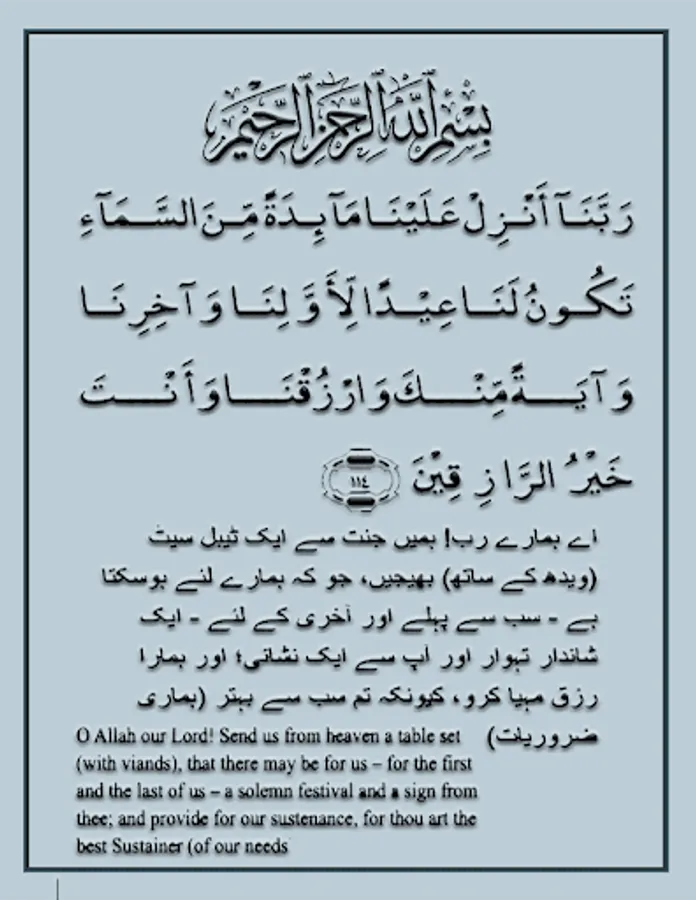 بِسْمِ اللهِ الرَّحْمٰنِ الرَّحِيْمِ
رَبَّنَآ أَنْزِلْ عَلَيْنَا مَآىِٕدَةً مِّنَ السَّمَآءِ
تَكُونُ لَنَا عِيْدًا لِّأَوَّلِنَا وَآخِرِنَا
وَآيَةً مِّنْكَ وَارْزُقْنَا وَأَنْتَ
خَيْرُ الرَّازِقِيْنَ ١١٤
اے ہمارے رب! ہمیں جنت سے ایک ٹیبل سیٹ
(ویدھ کے ساتھ) بھیجیں، جو کہ ہمارے لئے ہوسکتا
ہے - سب سے پہلے اور آخری کے لئے - ایک
شاندار تہوار اور آپ سے ایک نشانی؛ اور ہمارا
رزق مہیا کرو، کیونکہ تم سب سے بہتر (ہماری
ضروریات)
O Allah our Lord! Send us from heaven a table set
(with viands), that there may be for us – for the first
and the last of us – a solemn festival and a sign from
thee; and provide for our sustenance, for thou art the
best Sustainer (of our needs